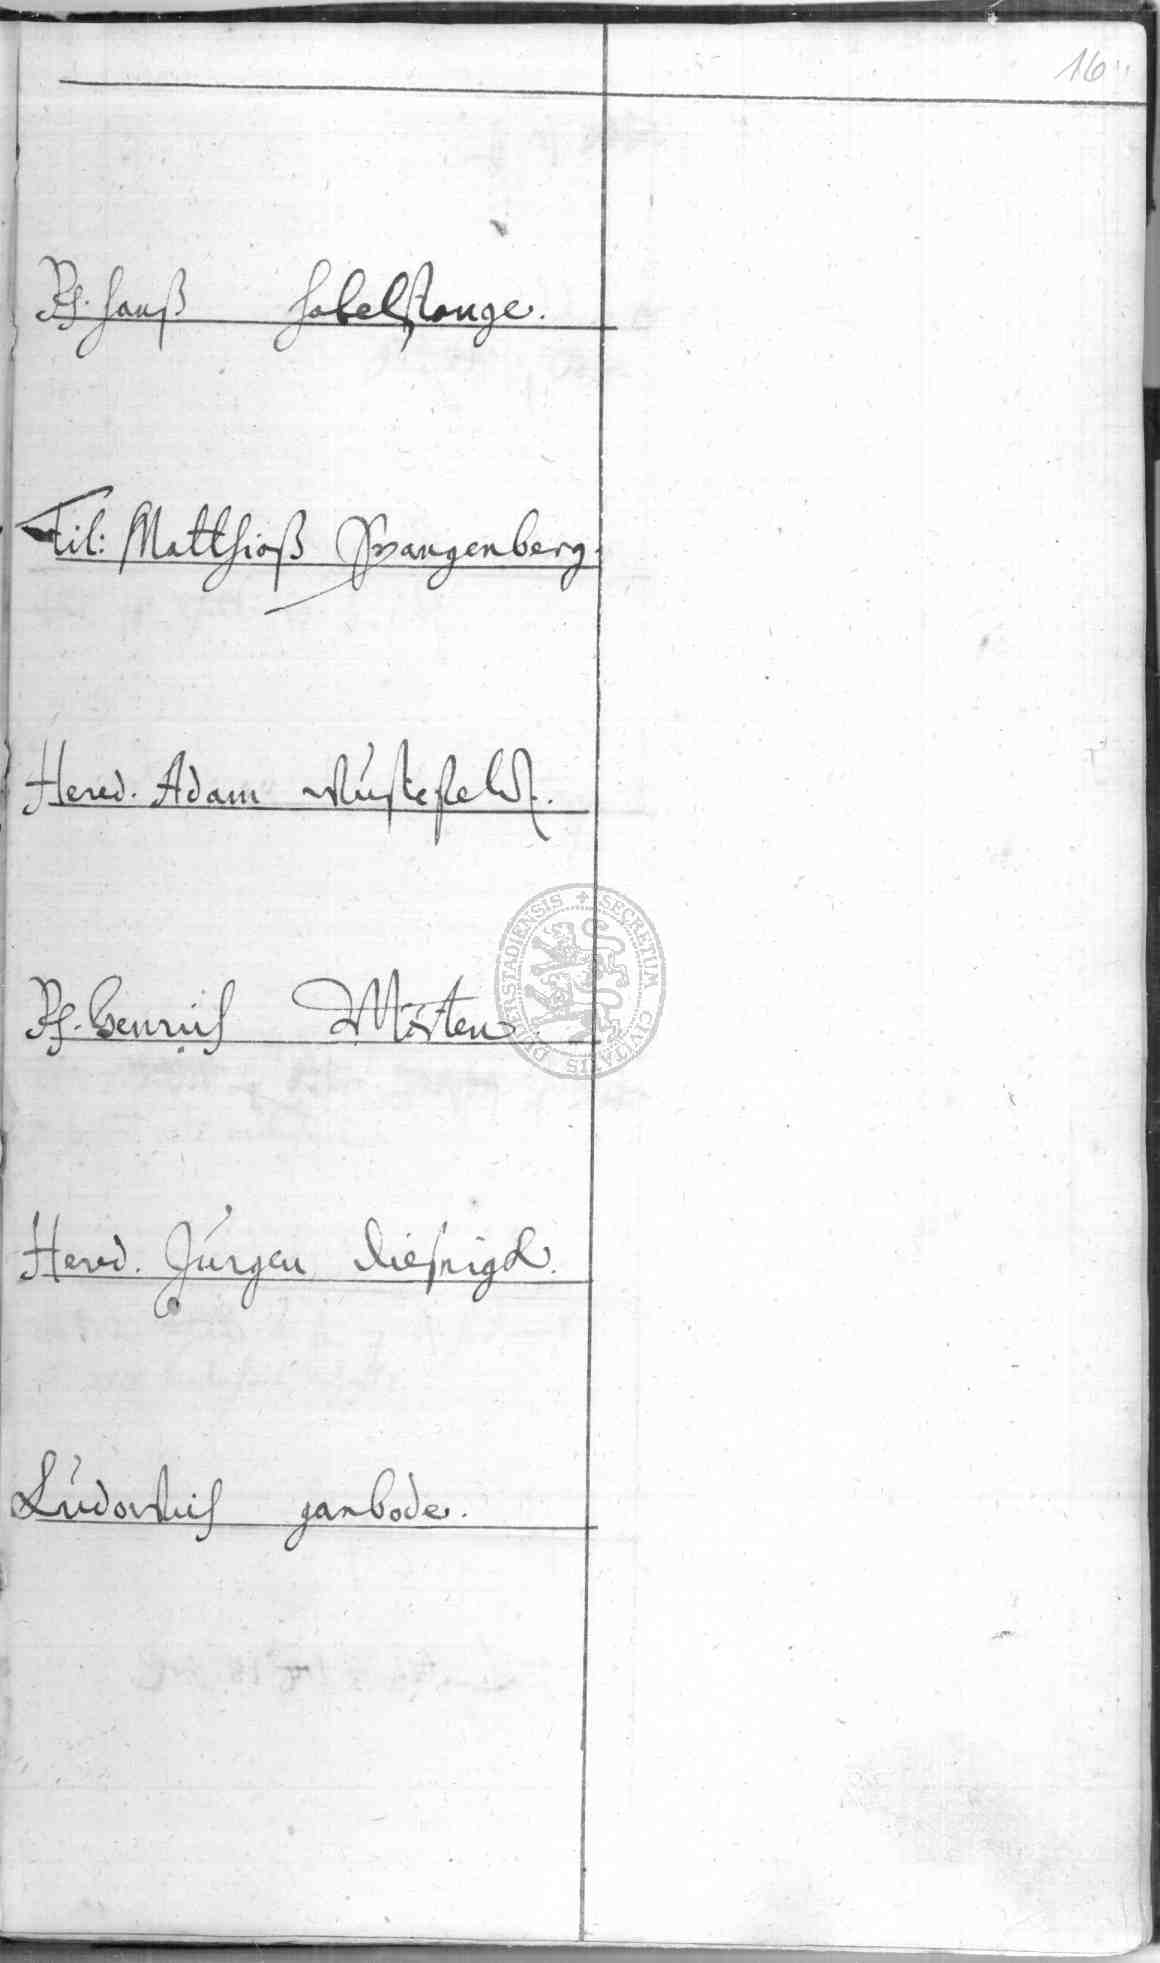 16
Rh. Hanß Habelstange.
Fil: Matthiaß Spangenberg.
Hered. Adam Wüstefeldt.
Rh. Henrich Mörten
Hered. Jürgen
Ludowich ganbode.
SECRETUM CIVITATIS DUDERSTADIENSIS